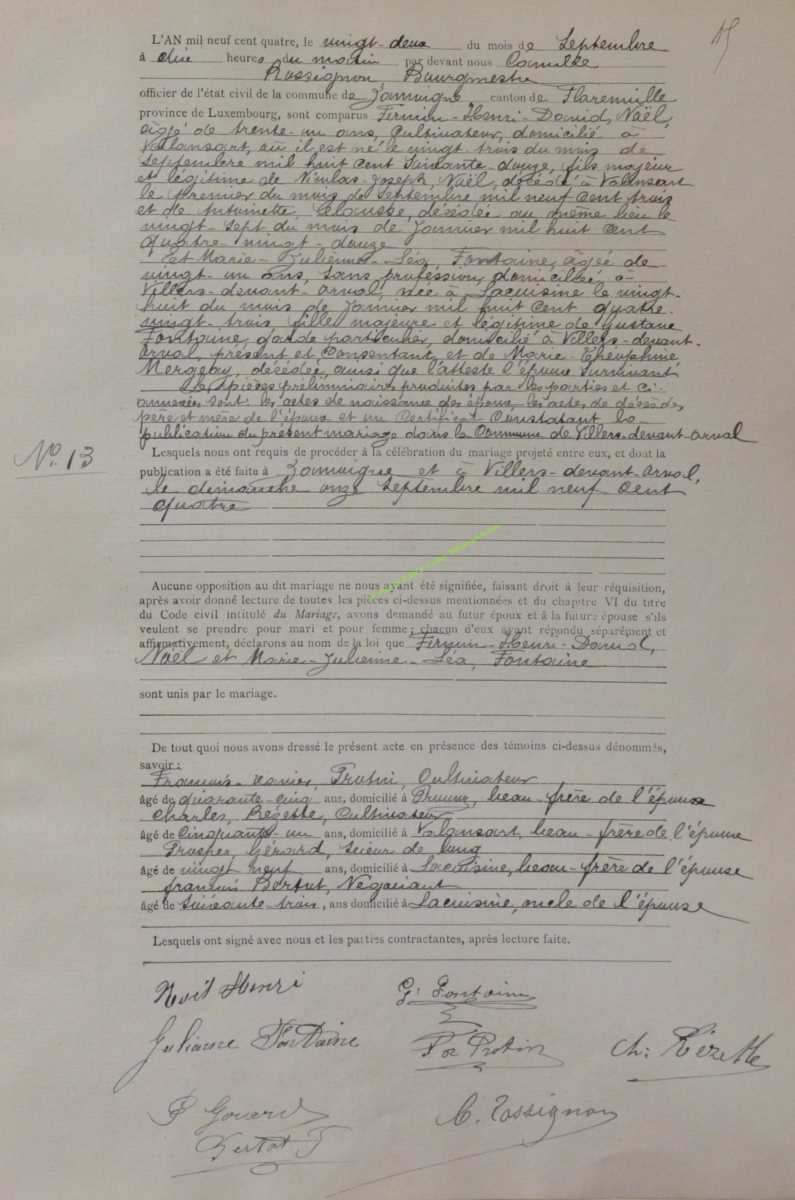 15
L'AN mil neuf cent quatre, le vingt-deux du mois de Septembre
à dix heures du matin par devant nous Camille
Rossignon, Bourgmestre
officier de l'état civil de la commune de Jamoigne canton de Florenville
province de Luxembourg, sont comparus Firmin-Henri-Donid, Naël,
âgé de trente-un ans, Cultivateur, domicilié à
Valansart, où il est né le vingt trois du mois de
Septembre mil huit cent Soixante-douze, fils majeur
et légitime de Nicolas-Joseph, Naël, décédé à Valansart
le premier du mois de Septembre mil neuf cent trois
et de Antoinette, décédée au même lieu le
vingt-Sept du mois de Janvier mil huit cent
quatre-vingt-douze
et Marie-Julienne-Léa, Fontaine, âgée de
vingt-un ans, Sans profession, domiciliée à
Villers-devant-orval, née à Lacuisine le vingt-
huit du mois de Janvier mil huit cent quatre
vingt-trois, fille majeure et légitime de Gustave
Fontaine, garde particulier, domicilié à Villers-devant-
Orval, présent et Consentant, et de Marie-Theuphinie
Mergeay, décédée, ainsi que l'atteste l'époux Survivant
Les pièces préliminaires produites par les parties et ci-
annexées sont: les actes de naissance des époux, les actes de décès des
père et mère de l'époux et un Certificat Constatant la
publication du présent mariage dans la Commune de Villers-devant-orval
N° 13
Lesquels nous ont requis de procéder à la célébration du mariage projeté entre eux, et dont la
publication a été faite à Jamoigne et à Villers-devant-orval,
le dimanche onze Septembre mil neuf cent
quatre
Aucune opposition au dit mariage ne nous ayant été signifiée, faisant droit à leur réquisition,
après avoir donné lecture de toutes les pièces ci-dessus mentionnées et du chapitre VI du titre
du Code civil intitulé du Mariage, avons demandé au futur époux et à la future épouse s'ils
veulent se prendre pour mari et pour femme; chacun d'eux ayant répondu séparément et
affirmativement, déclarons au nom de la loi que Firmin-Henri-Donid,
Naël et Marie-Julienne-Léa, Fontaine
sont unis par le mariage.
De tout quoi nous avons dressé le présent acte en présence des témoins ci-dessus dénommés,
savoir:
François-xavier, Protin, Cultivateur
âgé de quarante-cinq ans, domicilié à Prouvy, beau-frère de l'époux
Charles, Rézette, Cultivateur
âgé de Cinquante-un ans, domicilié à Valansart, beau-frère de l'époux
Prosper, Gérard, Scieur de long
âgé de vingt neuf ans, domicilié à Lacuisine, beau-frère de l'épouse
françois Bertut, Négociant
âgé de Soixante-trois, ans domicilié à Lacuisine, oncle de l'épouse
Lesquels ont signé avec nous et les parties contractantes, après lecture faite.
Noël Henri
G. Fontaine
Julienne Fontaine
F xe Protin
Ch: Rézette
P Gérard
C. Rossignon
Bertot F